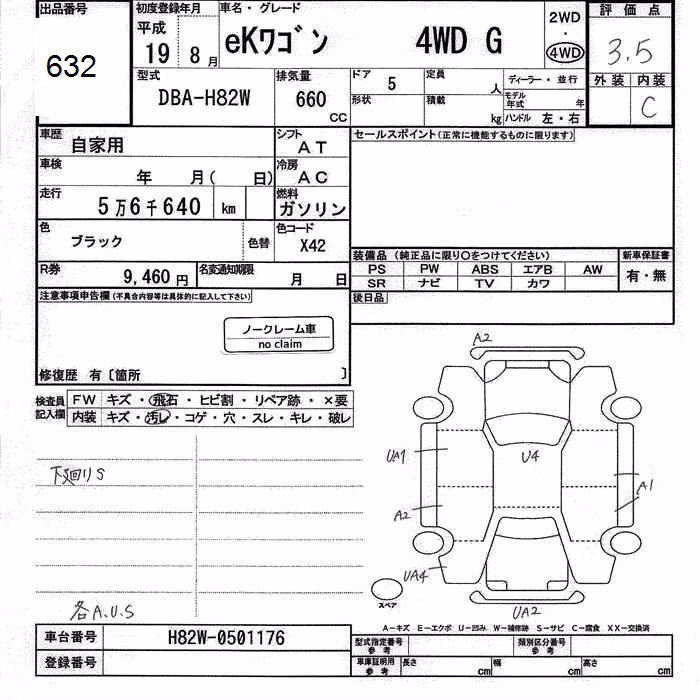 出品番号
632
初度登録年月
平成
19 8 月
車名・グレード
eKワゴン 4WD G
2WD
・
4WD
評価点
3.5
外装 内装
C
型式
DBA-H82W
排気量
660
CC
ドア 5
形状
定員 人
積載 kg
ディーラー・並行
モデル年式 年
ハンドル 左・右
車歴
自家用
シフト
AT
車検
年 月( 日)
冷房
AC
走行
5万6千640 km
燃料
ガソリン
色
ブラック
色替
色コード
X42
R券
9,460円
名変通知期限
月 日
セールスポイント(正常に機能するものに限ります)
装備品(純正品に限り○をつけてください)
PS PW ABS エアB AW
SR ナビ TV カワ
新車保証書
有・無
後日品
注意事項申告欄(不具合内容等は具体的に記入して下さい)
ノークレーム車
no claim
修復歴 有〔箇所 〕
検査員
記入欄
FW キズ・飛石・ヒビ割・リペア跡・×要
内装 キズ・汚レ・コゲ・穴・スレ・キレ・破レ
下廻りS
各A.U.S
A2
UA1
U4
A1
A2
UA4
UA2
スペア
A-キズ E-エクボ U-凹み W-補修跡 S-サビ C-腐食 XX-交換済
車台番号 H82W-0501176
登録番号
型式指定番号
参考
類別区分番号
参考
車庫証明用
参考
長さ cm
幅 cm
高さ cm